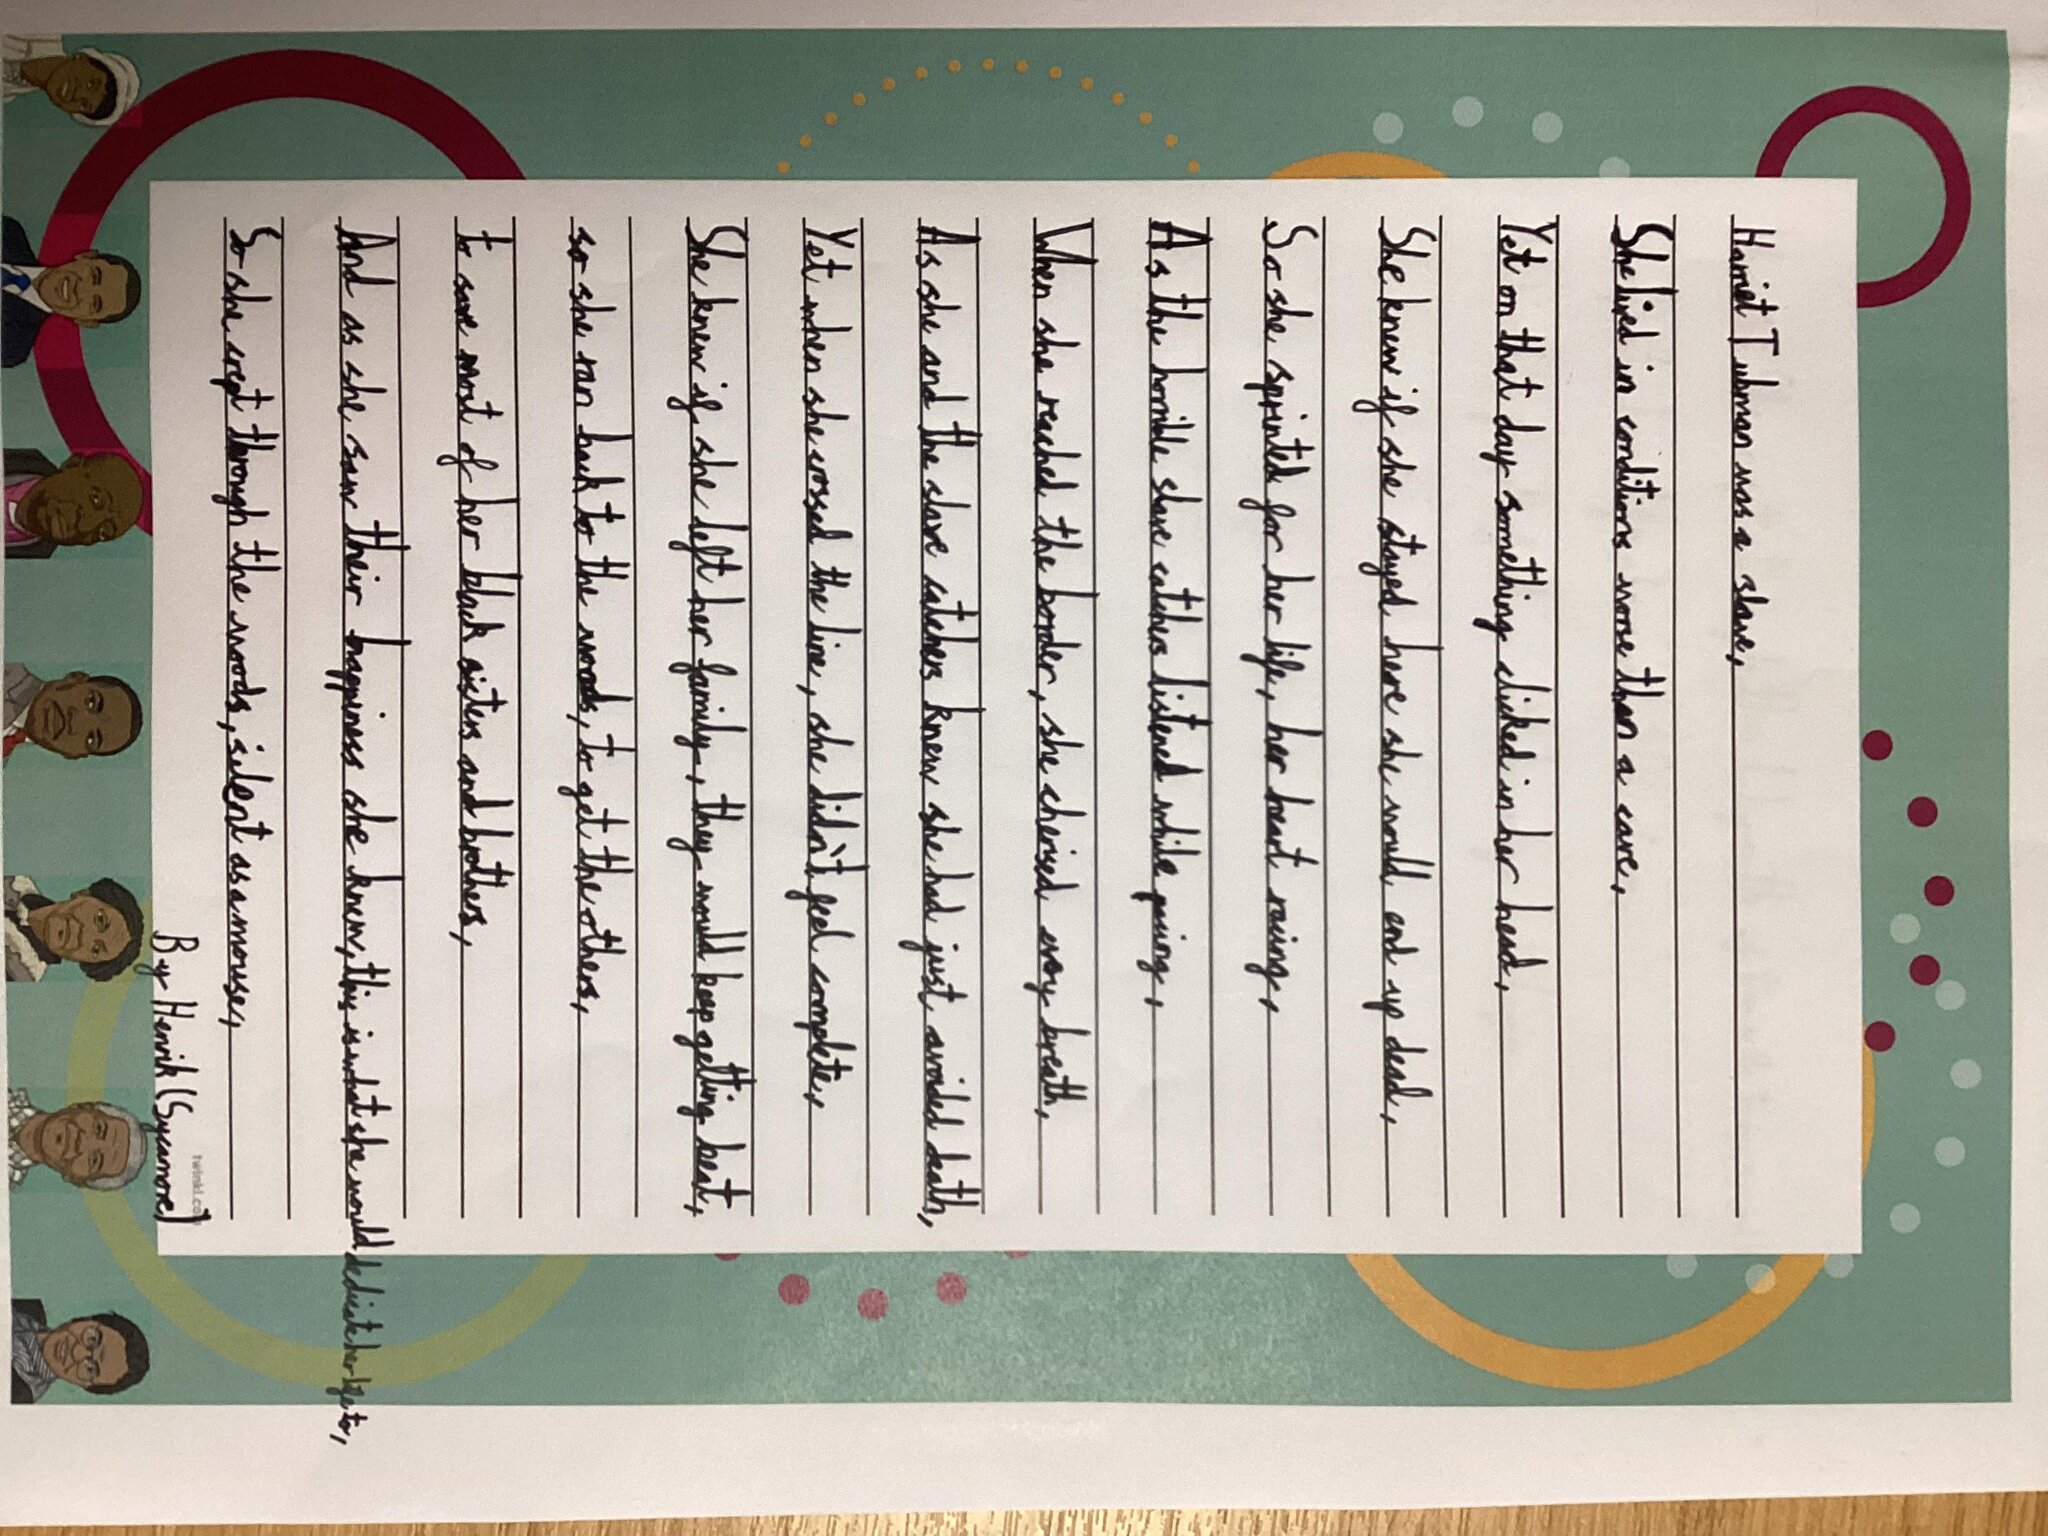 Harriet Tubman was a slave,
She lived in conditions worse than a cave,
Yet on that day something clicked in her head,
She knew if she stayed here she would end up dead,
So she sprinted for her life, her heart racing,
As the horrible slave catchers listened while pacing,
When she reached the border, she cherised every breath,
As she and the slave catchers knew she had just avoided death,
Yet when she crossed the line, she didn't feel complete,
She knew if she left her family, they would keep getting beat,
so she ran back to the woods, to get the others,
to save most of her black sisters and brothers,
And as she saw their happiness she knew, this is what she would dedicate her life to,
So she crept through the woods, silent as a mouse,
By Henrik (Sycamore)
twinkl.co